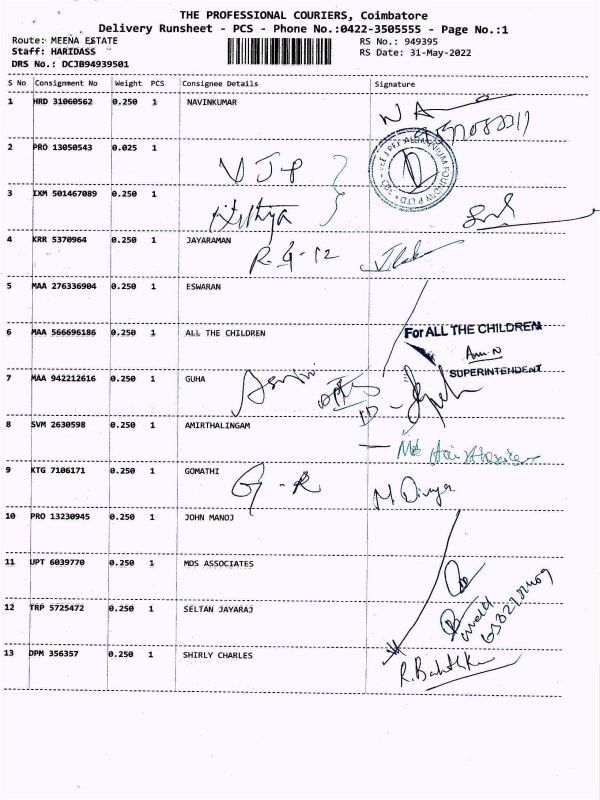 THE PROFESSIONAL COURIERS, Coimbatore
Delivery Runsheet - PCS - Phone No.:0422-3505555 - Page No.:1
Route: MEENA ESTATE RS No.: 949395
Staff: HARIDASS RS Date: 31-May-2022
DRS No.: DCJB94939501
S No Consignment No Weight PCS Consignee Details Signature
1 HRD 31060562 0.250 1 NAVINKUMAR
2 PRO 13050543 0.025 1
VJP
3 IXM 501467089 0.250 1
Nithya
4 KRR 5370964 0.250 1 JAYARAMAN
R.G-12
5 MAA 276336904 0.250 1 ESWARAN
6 MAA 566696186 0.250 1 ALL THE CHILDREN
For ALL THE CHILDREN
SUPERINTENDENT
7 MAA 942212616 0.250 1 GUHA
8 SVM 2630598 0.250 1 AMIRTHALINGAM
9 KTG 7106171 0.250 1 GOMATHI
G-R M Divya
10 PRO 13230945 0.250 1 JOHN MANOJ
11 UPT 6039770 0.250 1 MDS ASSOCIATES
12 TRP 5725472 0.250 1 SELTAN JAYARAJ
13 DPM 356357 0.250 1 SHIRLY CHARLES